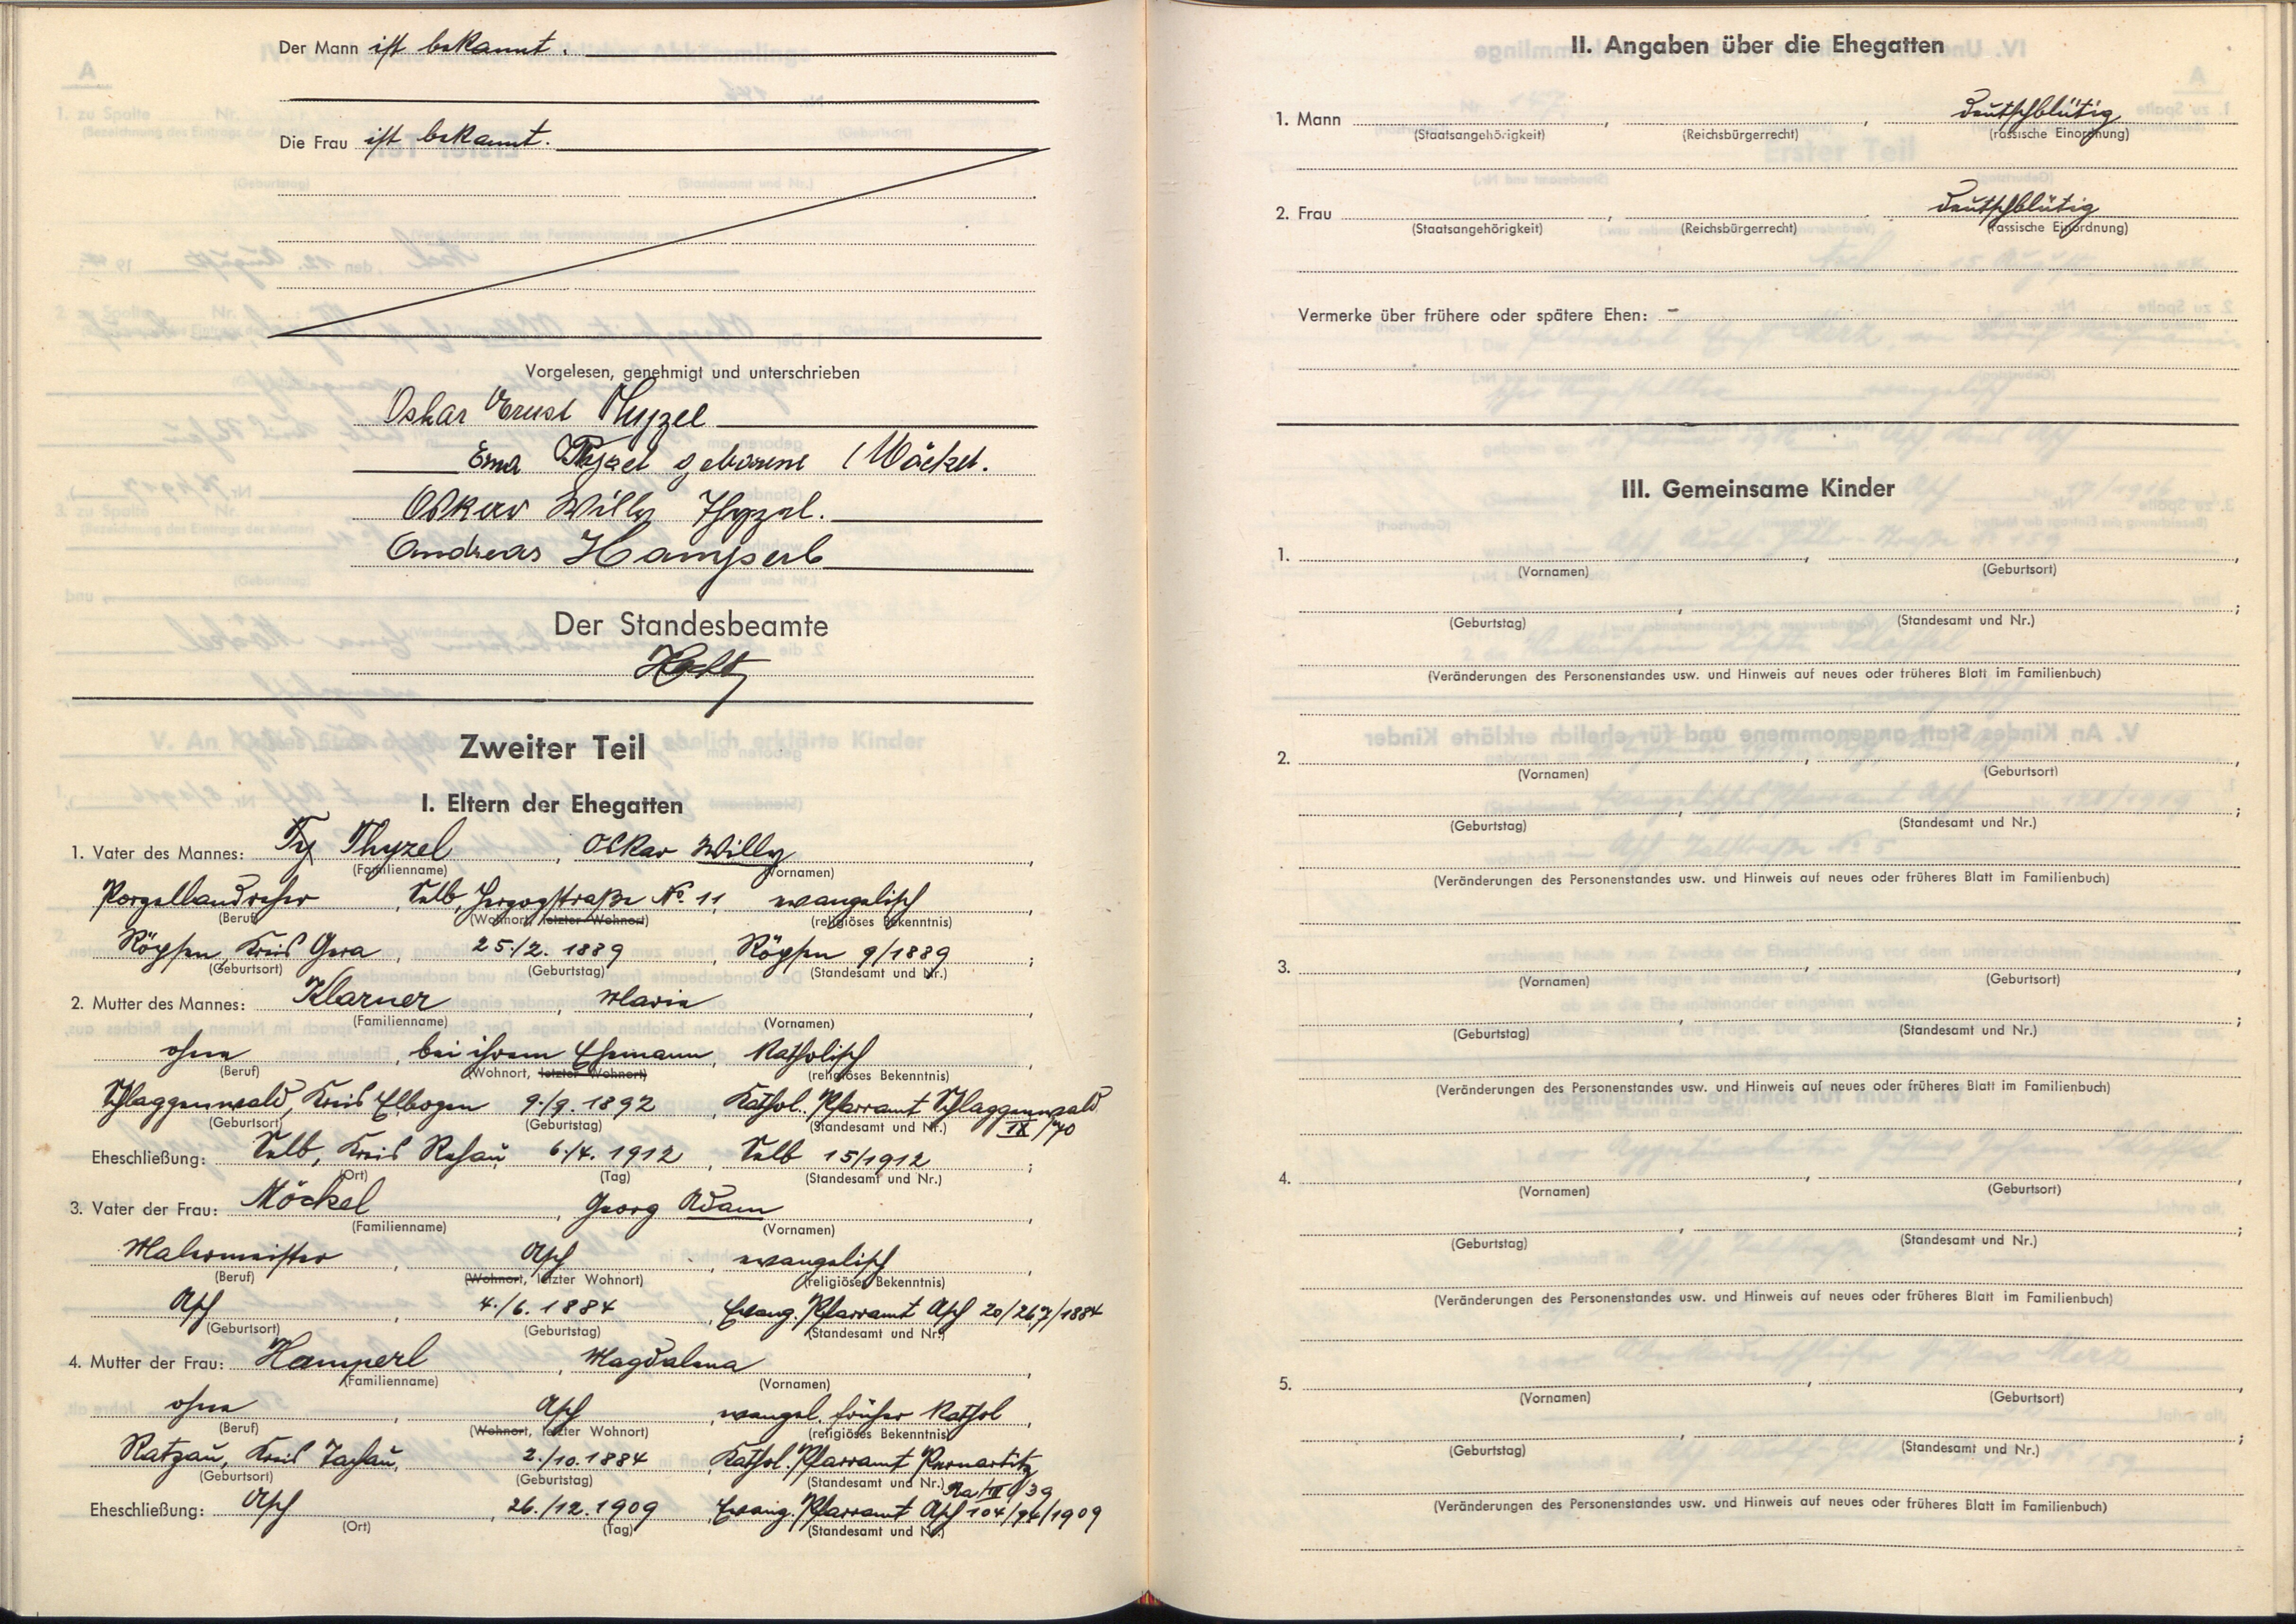 Der Mann ist bekannt.
Die Frau ist bekannt.
Vorgelesen, genehmigt und unterschrieben
Oskar Ernst Thyzel
Erna Thyzel geborene Möckel.
Oskar Willy Thyzel.
Andreas Hamperl
Der Standesbeamte
Zweiter Teil
I. Eltern der Ehegatten
1. Vater des Mannes: Thyzel, Oskar Willy
(Familienname) (Vornamen)
Porzellandreher, Selb, Herzogstraße No. 11, evangelisch,
(Beruf) (Wohnort, letzter Wohnort) (religiöses Bekenntnis)
Röpsen, Kreis Gera, 25./2. 1889, Röpsen 9/1889;
(Geburtsort) (Geburtstag) (Standesamt und Nr.)
2. Mutter des Mannes: Klarner, Maria,
(Familienname) (Vornamen)
ohne, bei ihrem Ehemann, katholisch,
(Beruf) (Wohnort, letzter Wohnort) (religiöses Bekenntnis)
Schlaggenwald, Kreis Elbogen 9./9. 1892, Kathol. Pfarramt Schlaggenwald
(Geburtsort) (Geburtstag) (Standesamt und Nr.) IX/70
Eheschließung: Selb, Kreis Rehau, 6./4. 1912, Selb 15/1912;
(Ort) (Tag) (Standesamt und Nr.)
3. Vater der Frau: Möckel, Georg Adam,
(Familienname) (Vornamen)
Malermeister, Asch, evangelisch,
(Beruf) (Wohnort, letzter Wohnort) (religiöses Bekenntnis)
Asch, 4./6. 1884, Evang. Pfarramt Asch 20/267/1884
(Geburtsort) (Geburtstag) (Standesamt und Nr.)
4. Mutter der Frau: Hamperl, Magdalena,
(Familienname) (Vornamen)
ohne, Asch, evangel. früher kathol,
(Beruf) (Wohnort, letzter Wohnort) (religiöses Bekenntnis)
Ratzau, Kreis Tachau, 2./10. 1884, Kathol. Pfarramt Pernartitz
(Geburtsort) (Geburtstag) (Standesamt und Nr.) Ra/II/39
Eheschließung: Asch, 26./12. 1909, Evang. Pfarramt Asch 104/96/1909
(Ort) (Tag) (Standesamt und Nr.)
II. Angaben über die Ehegatten
1. Mann, , deutschblütig
(Staatsangehörigkeit) (Reichsbürgerrecht) (rassische Einordnung)
2. Frau, , deutschblütig
(Staatsangehörigkeit) (Reichsbürgerrecht) (rassische Einordnung)
Vermerke über frühere oder spätere Ehen: -
III. Gemeinsame Kinder
1. , ,
(Vornamen) (Geburtsort)
, ;
(Geburtstag) (Standesamt und Nr.)
(Veränderungen des Personenstandes usw. und Hinweis auf neues oder früheres Blatt im Familienbuch)
2. , ,
(Vornamen) (Geburtsort)
, ;
(Geburtstag) (Standesamt und Nr.)
(Veränderungen des Personenstandes usw. und Hinweis auf neues oder früheres Blatt im Familienbuch)
3. , ,
(Vornamen) (Geburtsort)
, ;
(Geburtstag) (Standesamt und Nr.)
(Veränderungen des Personenstandes usw. und Hinweis auf neues oder früheres Blatt im Familienbuch)
4. , ,
(Vornamen) (Geburtsort)
, ;
(Geburtstag) (Standesamt und Nr.)
(Veränderungen des Personenstandes usw. und Hinweis auf neues oder früheres Blatt im Familienbuch)
5. , ,
(Vornamen) (Geburtsort)
, ;
(Geburtstag) (Standesamt und Nr.)
(Veränderungen des Personenstandes usw. und Hinweis auf neues oder früheres Blatt im Familienbuch)